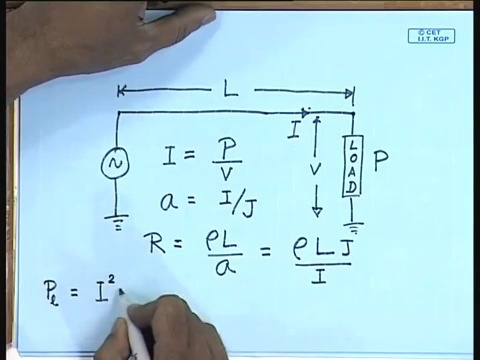 © CET
I.I.T. KGP
L
I
V
LOAD
P
I = P/V
a = I/J
R = ρL/a = ρLJ/I
Pₗ = I²